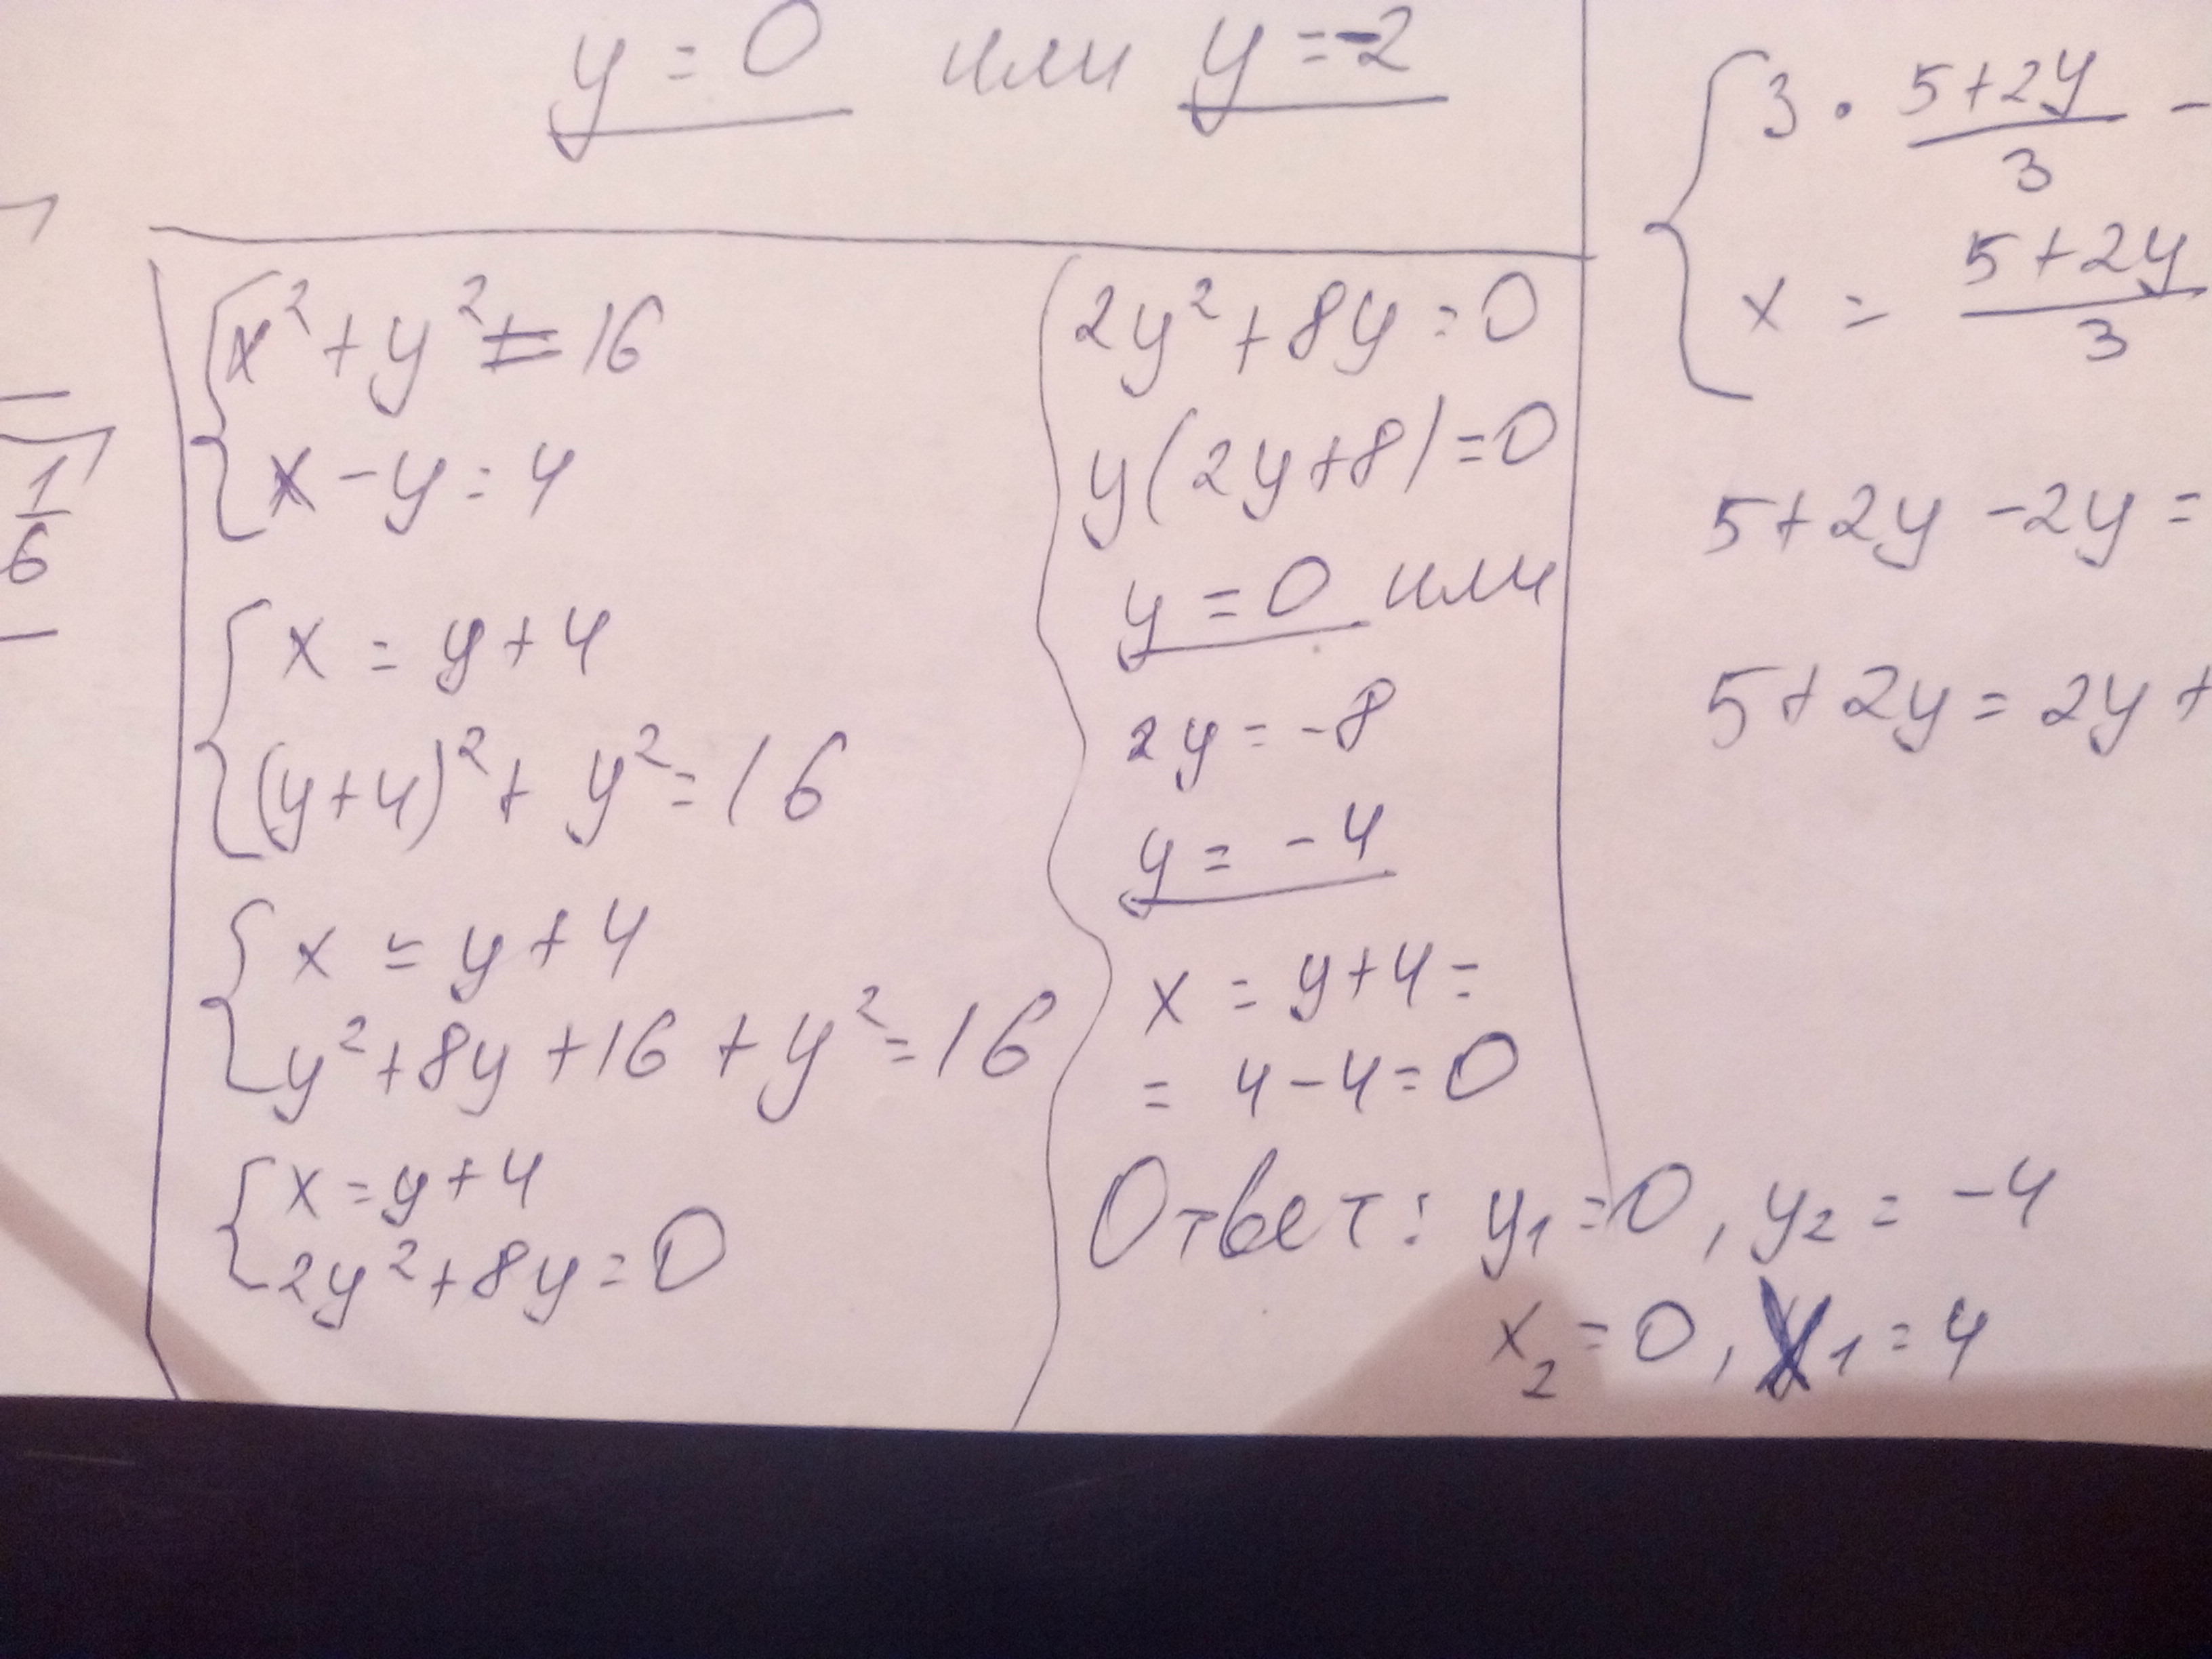 y = 0 или y = -2
x² + y² = 16
x - y = 4
x = y + 4
(y+4)² + y² = 16
x = y + 4
y² + 8y + 16 + y² = 16
x = y + 4
2y² + 8y = 0
2y² + 8y = 0
y(2y+8) = 0
y = 0 или
2y = -8
y = -4
x = y + 4 =
= 4 - 4 = 0
Ответ: y₁ = 0, y₂ = -4
x₂ = 0, x₁ = 4
3 · (5+2y)/3 -
x = (5+2y)/3
5 + 2y - 2y =
5 + 2y = 2y +
1/6